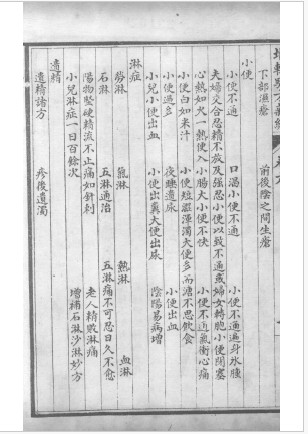 下部濕瘡　前後陰之間生瘡
小便
小便不通　口渴小便不通　小便不通遍身水腫
夫婦交合忍精不放及强忍小便以致不通或婦女轉胞小便閉塞
心熱如火一熱便入小腸大小便不快　小便不通氣衝心痛
小便白如米汁　小便短澀渾濁大便多而溏不思飲食
小便過多　夜睡遺尿　小便出血
小兒小便出血　小便出糞大便出尿　陰陽易病增
淋症
勞淋　氣淋　熱淋　血淋
石淋　五淋通治　五淋痛不可忍日久不愈
陽物堅硬精流不止痛如針刺　老人精敗淋痛
小兒淋症一日百餘次　增補石淋沙淋妙方
遺精
遺精諸方　疹後遺濁